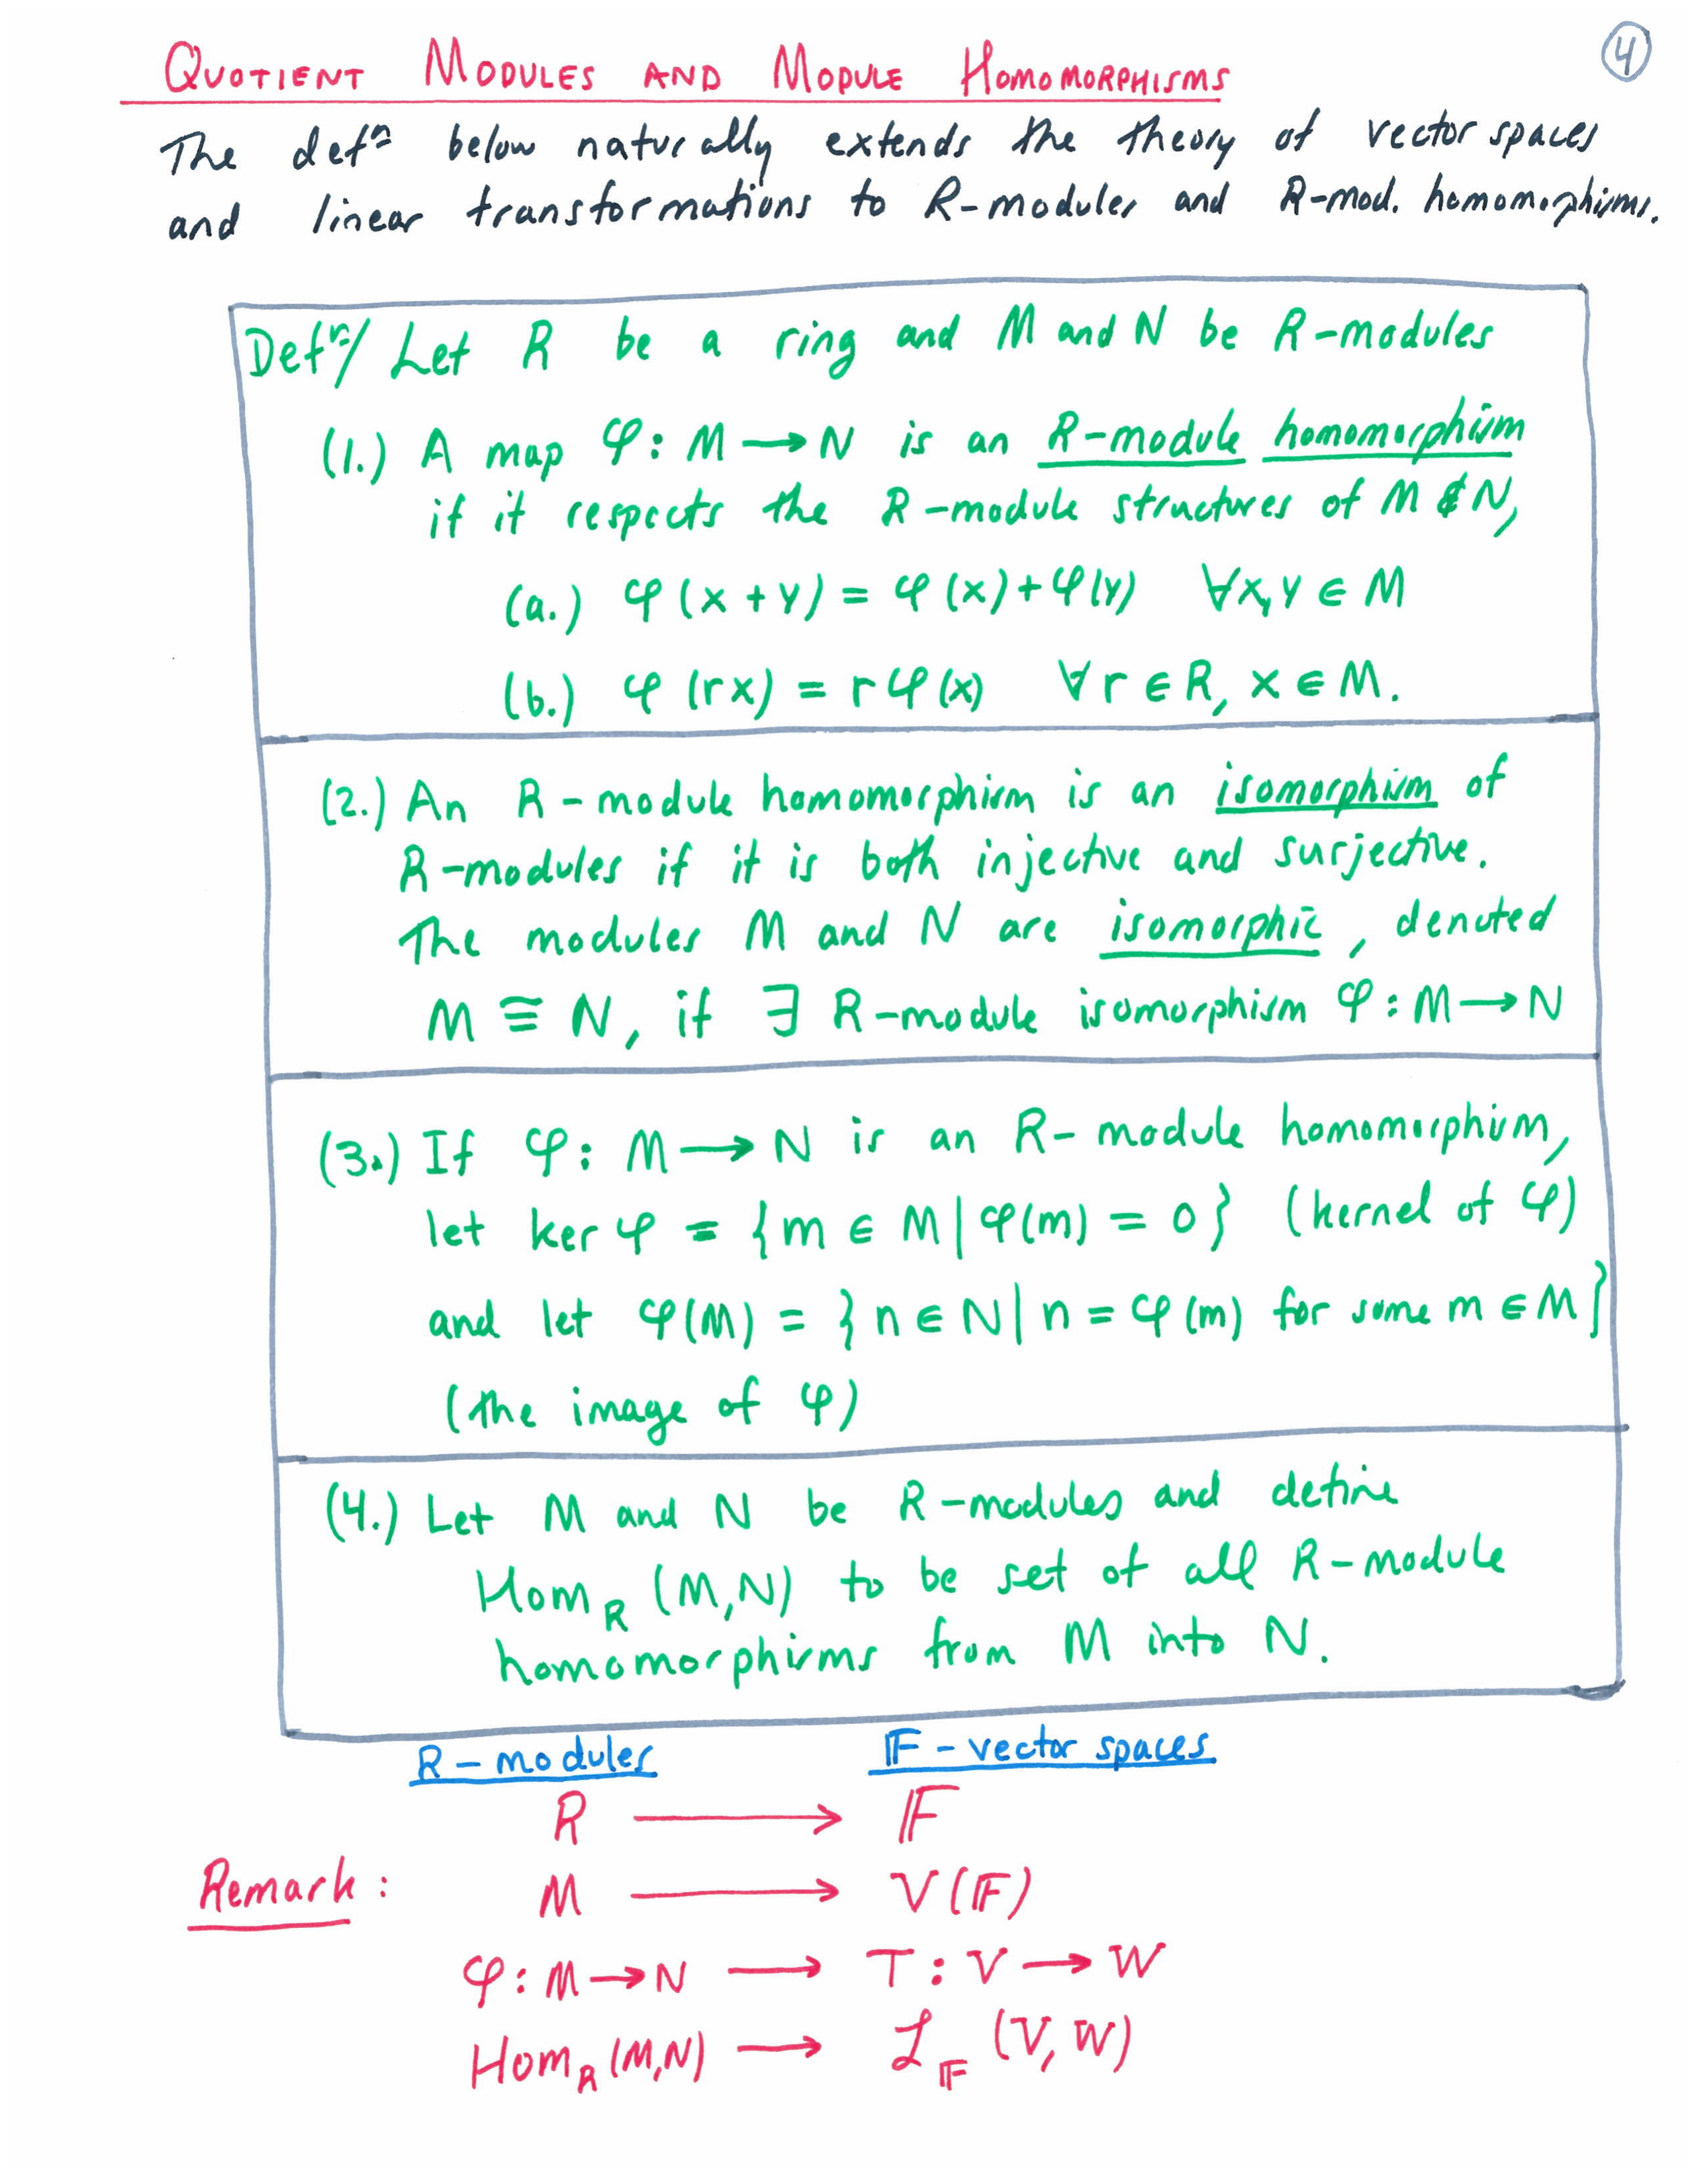 QUOTIENT MODULES AND MODULE HOMOMORPHISMS
4
The defⁿ below naturally extends the theory of vector spaces
and linear transformations to R-modules and R-mod. homomorphisms.
Defⁿ/ Let R be a ring and M and N be R-modules
(1.) A map φ: M → N is an R-module homomorphism
if it respects the R-module structures of M & N,
(a.) φ(x+y) = φ(x)+φ(y) ∀x,y ∈ M
(b.) φ(rx) = rφ(x) ∀r ∈ R, x ∈ M.
(2.) An R-module homomorphism is an isomorphism of
R-modules if it is both injective and surjective.
The modules M and N are isomorphic, denoted
M ≅ N, if ∃ R-module isomorphism φ: M → N
(3.) If φ: M → N is an R-module homomorphism,
let ker φ = {m ∈ M | φ(m) = 0} (kernel of φ)
and let φ(M) = {n ∈ N | n = φ(m) for some m ∈ M}
(the image of φ)
(4.) Let M and N be R-modules and define
Hom_R (M,N) to be set of all R-module
homomorphisms from M into N.
R-modules 𝔽-vector spaces
R → 𝔽
Remark: M → V(𝔽)
φ: M → N → T: V → W
Hom_R (M,N) → ℒ_𝔽 (V,W)